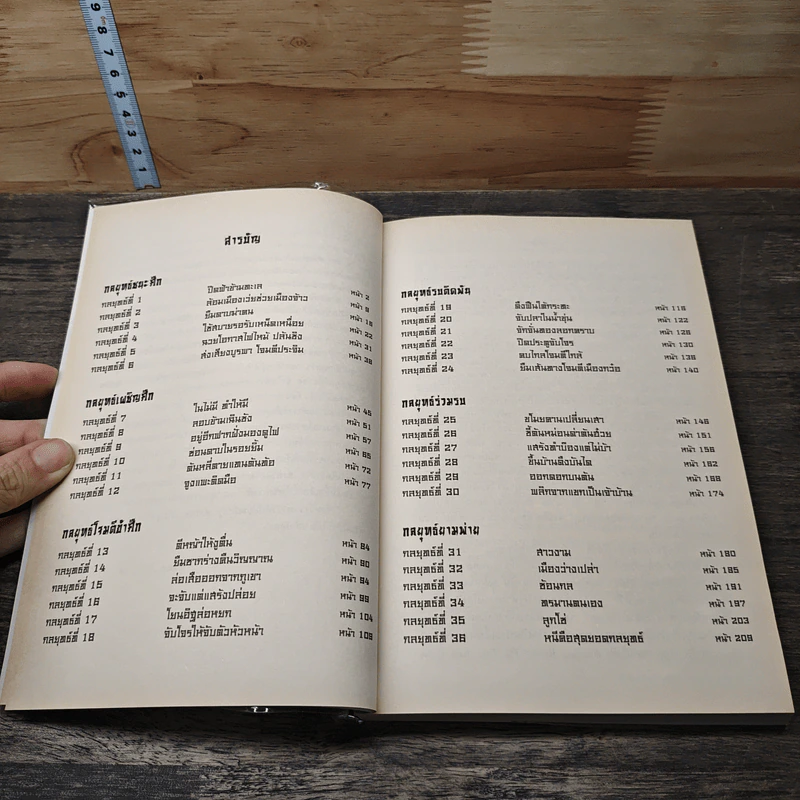 9 8 7 6 5 4 3 2 1
สารบัญ
กลยุทธ์ชนะศึก
กลยุทธ์ที่ 1 ปิดฟ้าข้ามทะเล หน้า 2
กลยุทธ์ที่ 2 ล้อมเมืองเว่ยช่วยเมืองจ้าว หน้า 9
กลยุทธ์ที่ 3 ยืมดาบฆ่าคน หน้า 16
กลยุทธ์ที่ 4 ใช้สบายรอรับเหน็ดเหนื่อย หน้า 22
กลยุทธ์ที่ 5 ฉวยโอกาสไฟไหม้ ปล้นชิง หน้า 31
กลยุทธ์ที่ 6 ส่งเสียงบูรพา โจมตีประจิม หน้า 38
กลยุทธ์เผชิญศึก
กลยุทธ์ที่ 7 ในไม่มี ทำให้มี หน้า 45
กลยุทธ์ที่ 8 ลอบข้ามเฉินชัง หน้า 51
กลยุทธ์ที่ 9 อยู่อีกฟากฝั่งมองดูไฟ หน้า 57
กลยุทธ์ที่ 10 ซ่อนดาบในรอยยิ้ม หน้า 65
กลยุทธ์ที่ 11 ต้นหลี่ตายแทนต้นท้อ หน้า 72
กลยุทธ์ที่ 12 จูงแพะติดมือ หน้า 77
กลยุทธ์โจมตีข้าศึก
กลยุทธ์ที่ 13 ตีหญ้าให้งูตื่น หน้า 84
กลยุทธ์ที่ 14 ยืมซากร่างคืนวิญญาณ หน้า 90
กลยุทธ์ที่ 15 ล่อเสือออกจากภูเขา หน้า 94
กลยุทธ์ที่ 16 จะจับแต่แสร้งปล่อย หน้า 99
กลยุทธ์ที่ 17 โยนอิฐล่อหยก หน้า 104
กลยุทธ์ที่ 18 จับโจรให้จับตัวหัวหน้า หน้า 109
กลยุทธ์รบติดพัน
กลยุทธ์ที่ 19 ดึงฟืนใต้กระทะ หน้า 116
กลยุทธ์ที่ 20 จับปลาในน้ำขุ่น หน้า 122
กลยุทธ์ที่ 21 จักจั่นทองลอกคราบ หน้า 126
กลยุทธ์ที่ 22 ปิดประตูจับโจร หน้า 130
กลยุทธ์ที่ 23 คบไกลโจมตีใกล้ หน้า 136
กลยุทธ์ที่ 24 ยืมเส้นทางโจมตีเมืองกว๋อ หน้า 140
กลยุทธ์ร่วมรบ
กลยุทธ์ที่ 25 ขโมยคานเปลี่ยนเสา หน้า 146
กลยุทธ์ที่ 26 ชี้ต้นหม่อนด่าต้นฮ้วย หน้า 151
กลยุทธ์ที่ 27 แสร้งทำบ้องแต่ไม่บ้า หน้า 156
กลยุทธ์ที่ 28 ขึ้นบ้านดึงบันได หน้า 162
กลยุทธ์ที่ 29 ออกดอกบนต้น หน้า 169
กลยุทธ์ที่ 30 พลิกจากแขกเป็นเจ้าบ้าน หน้า 174
กลยุทธ์ยามพ่าย
กลยุทธ์ที่ 31 สาวงาม หน้า 180
กลยุทธ์ที่ 32 เมืองว่างเปล่า หน้า 185
กลยุทธ์ที่ 33 ซ้อนกล หน้า 191
กลยุทธ์ที่ 34 ทรมานตนเอง หน้า 197
กลยุทธ์ที่ 35 ลูกโซ่ หน้า 203
กลยุทธ์ที่ 36 หนีคือสุดยอดกลยุทธ์ หน้า 209